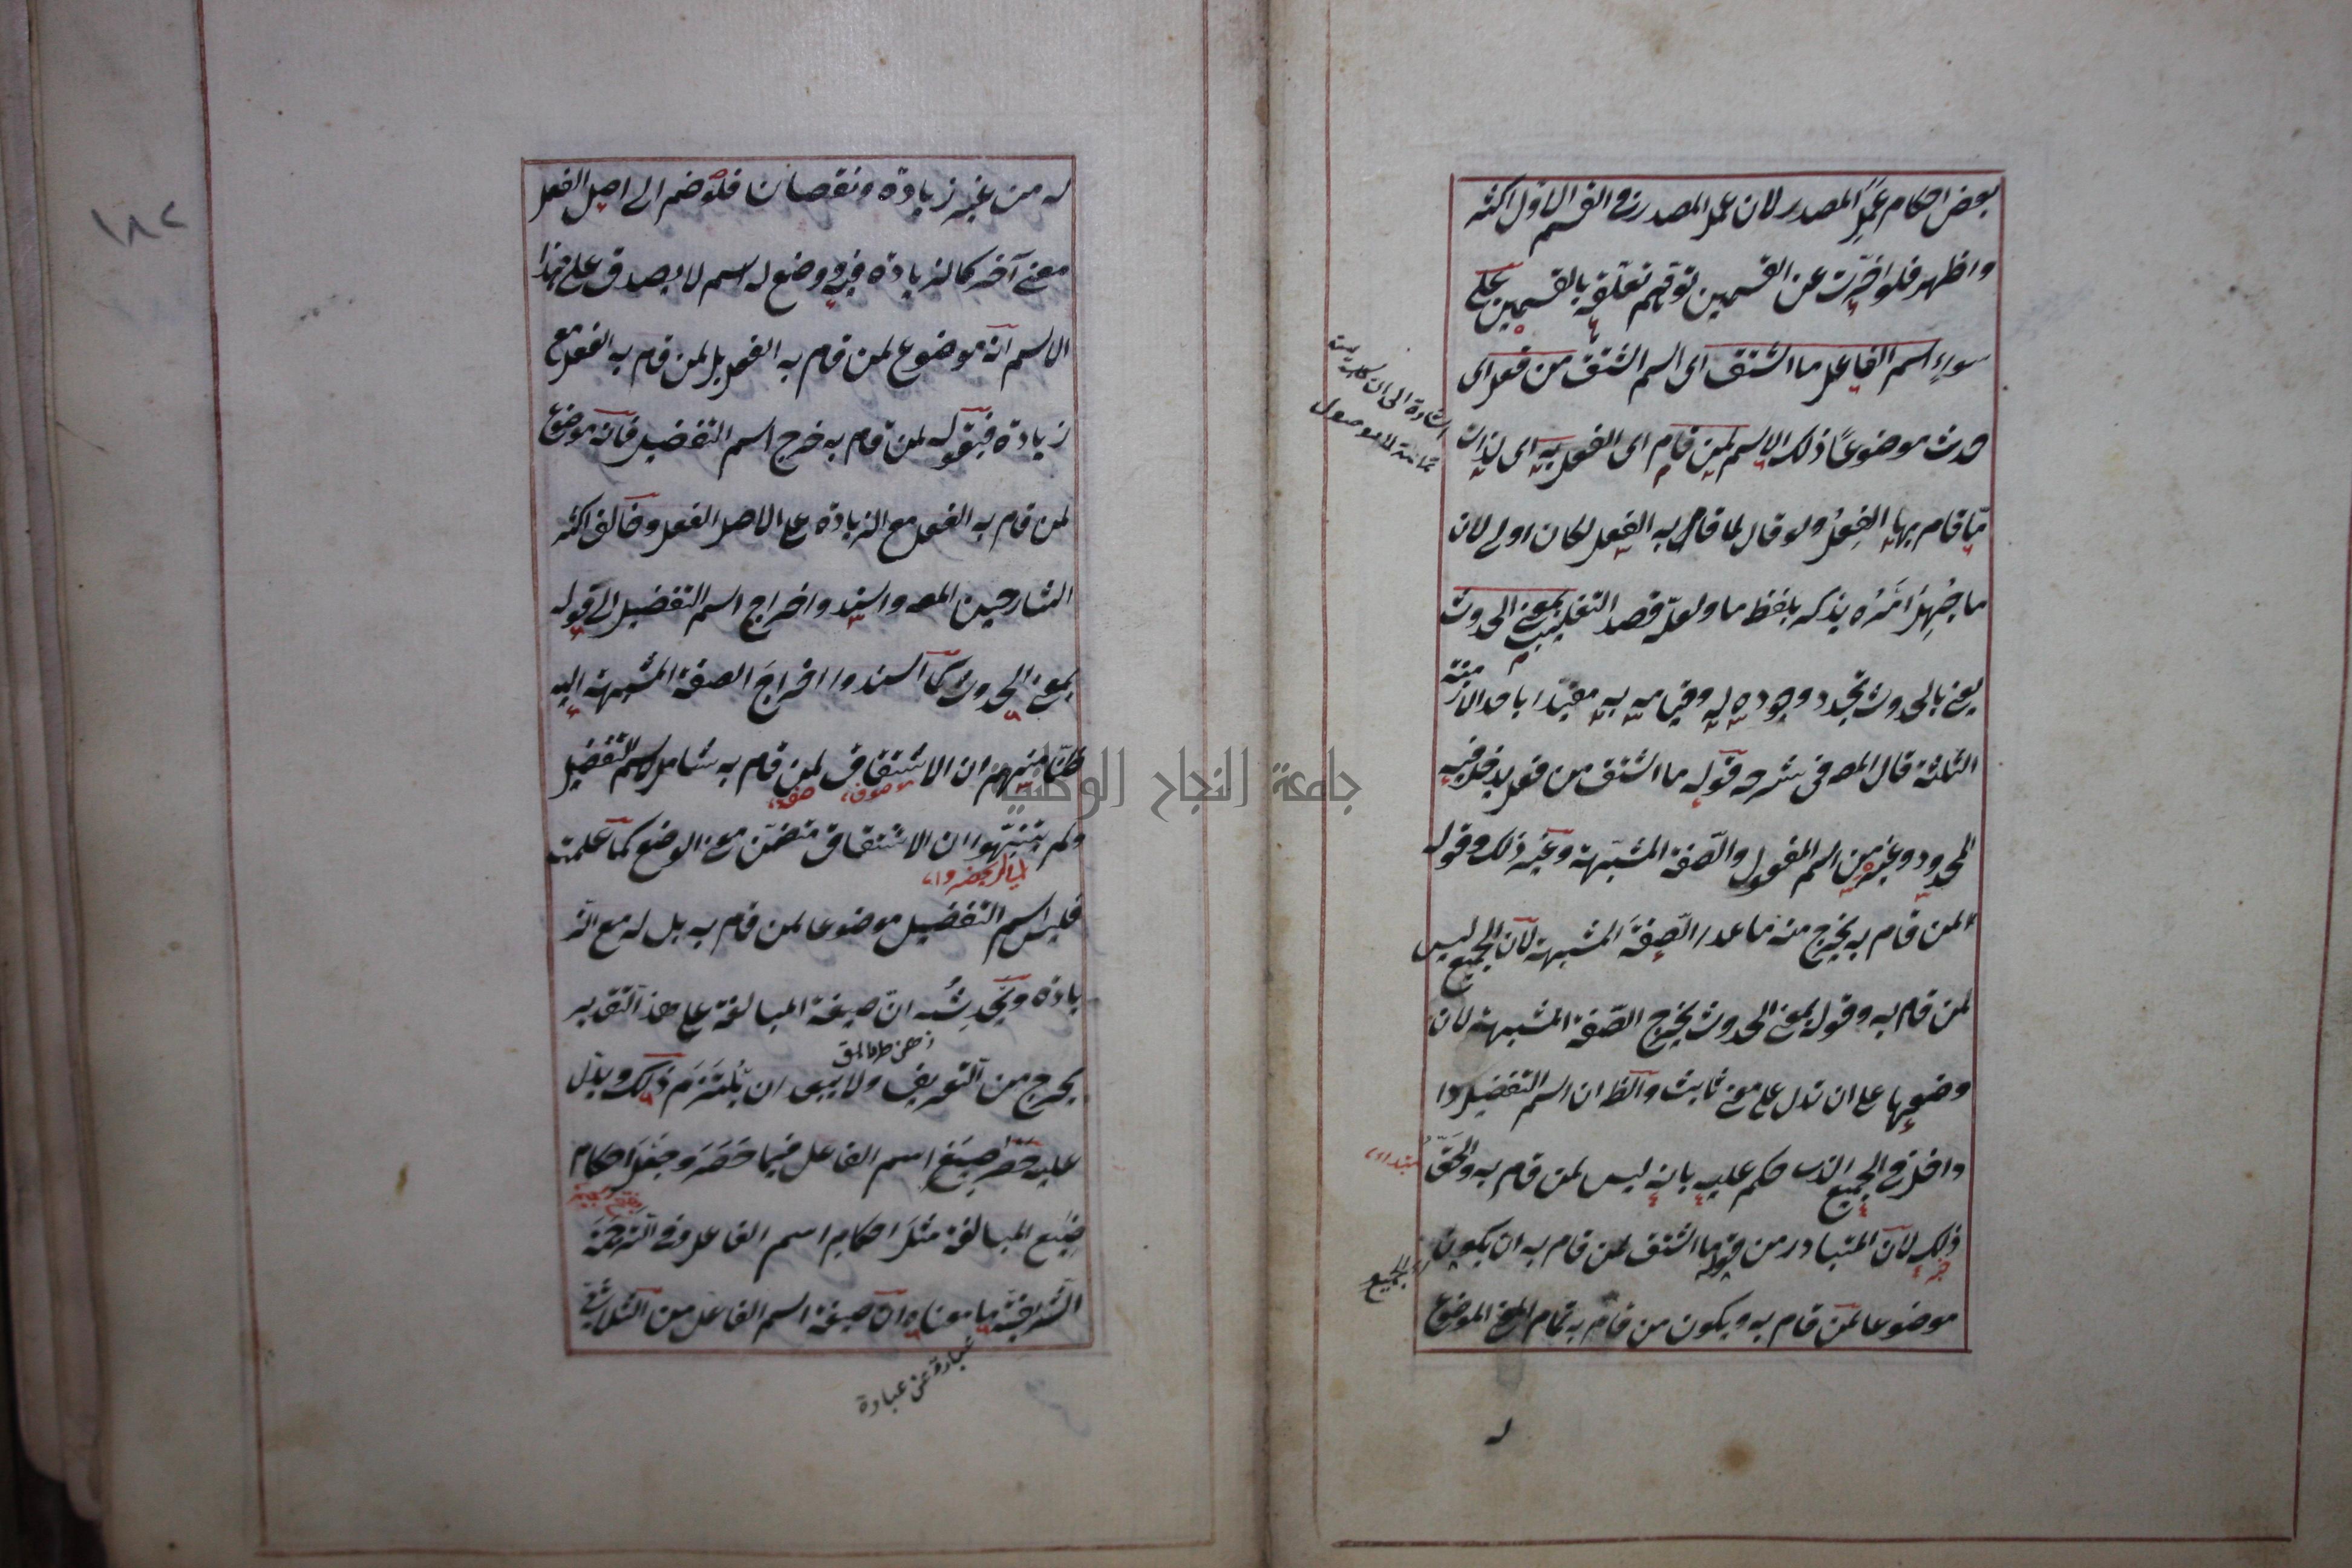 بعض احكام عمل المصدر لان عمل المصدر في القسم الاول اكثر
واظهر فلو اخرت عن القسمين توهم تعلقه بالقسمين
سواء اسم الفاعل ما اشتق اى اسم اشتق من فعل اى
حدث موضوعًا ذلك الاسم لمن قام اى الفعل به اى لذات
ما قام بها الفعل ولو قال لما قام به الفعل لكان اولى لان
ما جهل امره يذكر بلفظ ما ولعله قصد التغليب بمعنى الحدوث
يعنى بالحدوث تجدد وجوده له وقيامه به مقيدا باحد الازمنة
الثلثة قال المص فى شرحه قوله ما اشتق من فعل يدخل فيه
المحدود وغيره من اسم المفعول والصفة المشبهة وغير ذلك وقوله
لمن قام به يخرج منه ما عدا الصفة المشبهة لان الجميع ليس
لمن قام به وقوله بمعنى الحدوث يخرج الصفة المشبهة لان
وضعها على ان تدل على معنى ثابت والظ ان اسم التفضيل دا
داخل فى الجميع الذى حكم عليه بانه ليس لمن قام به والحق
ذلك لان المتبادر من قوله ما اشتق لمن قام به ان يكون
موضوعا لمن قام به ويكون من قام به تمام المعنى الموضوع
له
اشارة الى ان كلمة
لا موصول
مبتداء
اى الجميع
خبر
له من غير زيادة ونقصان فلو ضم الى اصل الفعل
معنى آخر كالزيادة فيه ووضع له اسم لا يصدق على هذا
الاسم انه موضوع لمن قام به الفعل بل لمن قام به الفعل مع
زيادة فبقوله لمن قام به خرج اسم التفضيل فانه موضوع
لمن قام به الفعل مع الزيادة على الاصل الفعل وخالف اكثر
الشارحين المص واسند واخراج اسم التفضيل الى قوله
بمعنى الحدوث كما اسندوا اخراج الصفة المشبهة اليه
ظنا منهم ان الاشتقاق لمن قام به شامل لاسم التفضيل
ولم يتنبهوا ان الاشتقاق متضمن معنى الوضع كما علمت
فليس اسم التفضيل موضوعا لمن قام به بل له مع الز
يادة ويخدشه ان صيغة المبالغة على هذا التقدير
يخرج من التعريف ولا يبعد ان يلتزم ذلك ويدل
عليه حصر صيغ اسم الفاعل فيما حصر وجعل احكام
صيغ المبالغة مثل احكام اسم الفاعل وفى الترجمة
الشريفية ما معناه ان صيغة اسم الفاعل من الثلاثى
عبارة عن عبارة
١٨٢
جامعة النجاح الوطنية